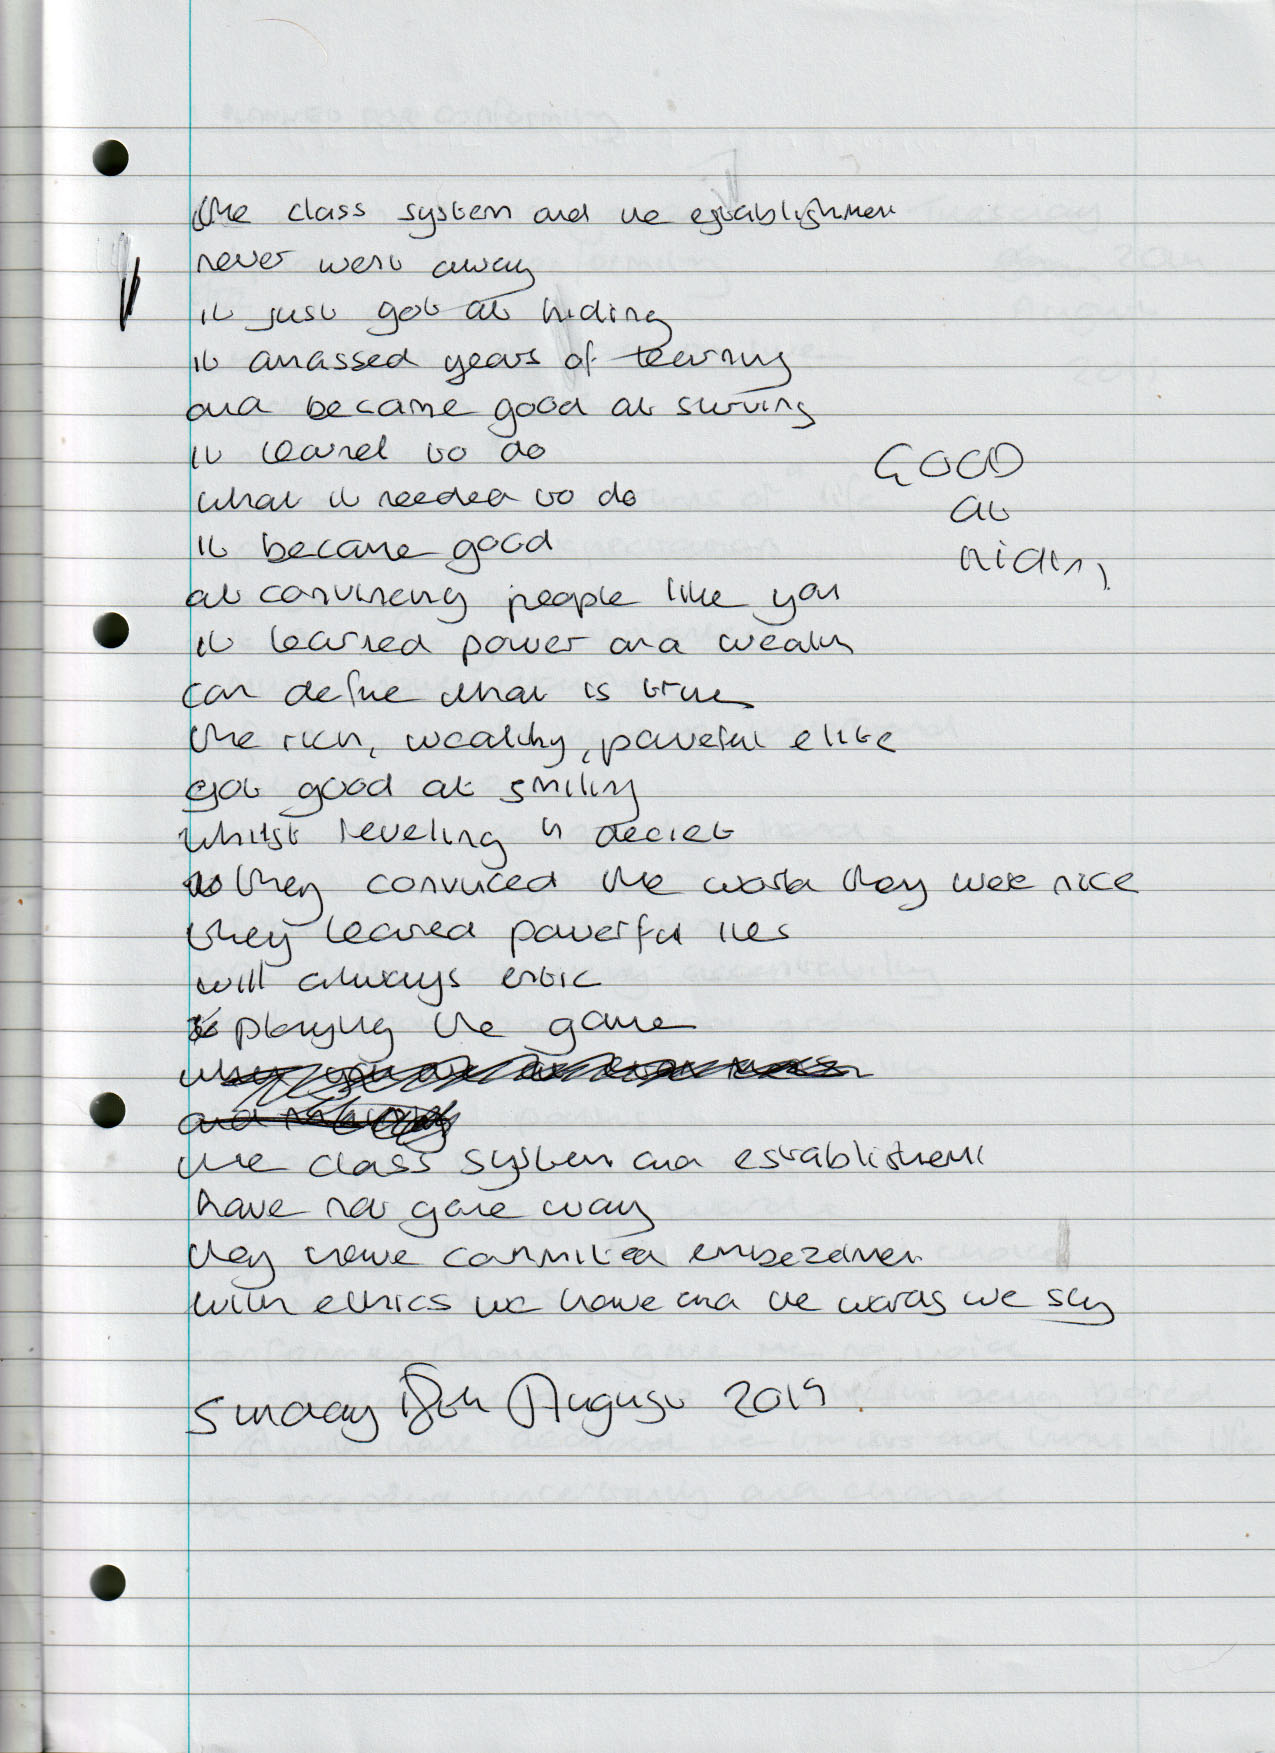 the class system and the establishment
never went away
it just got at hiding
it amassed years of learning
and became good at surving
it learnet to do
what it needed to do
it became good
at convincing people like you
it learned power and wealth
can define what is true
the rich, wealthy, powerful elite
got good at smiling
whilst leveling in deciet
they convinced the world they were nice
they learned powerful lies
will always entic
playing the game
the class system and establishment
have not gone way
they have commited embezelment
with ethics we have and the words we say
GOOD
at
hiding
Sunday 18th August 2019